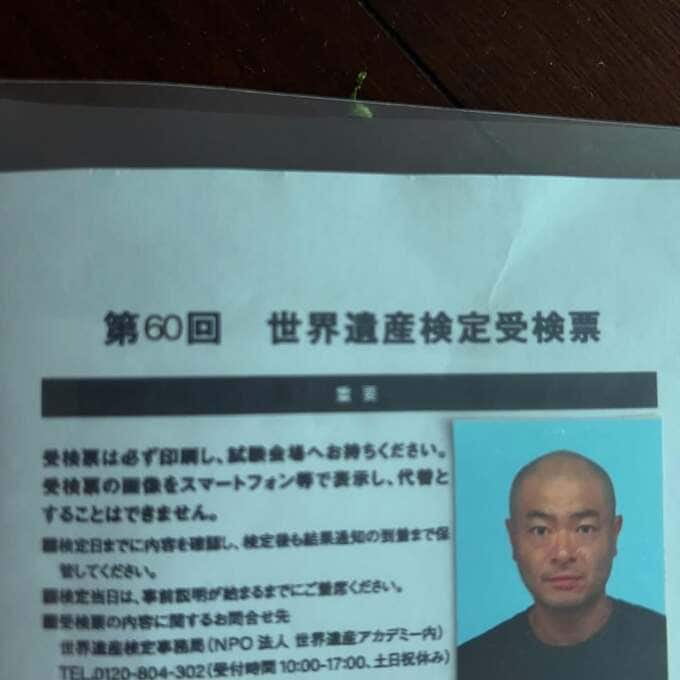 第60回 世界遺産検定受検票
重要
受検票は必ず印刷し、試験会場へお持ちください。
受検票の画像をスマートフォン等で表示し、代替と
することはできません。
■検定日までに内容を確認し、検定後も結果通知の到着まで保
管してください。
■検定当日は、事前説明が始まるまでにご着席ください。
■受検票の内容に関するお問合せ先
世界遺産検定事務局(NPO 法人 世界遺産アカデミー内)
TEL.0120-804-302(受付時間 10:00-17:00、土日祝休み)